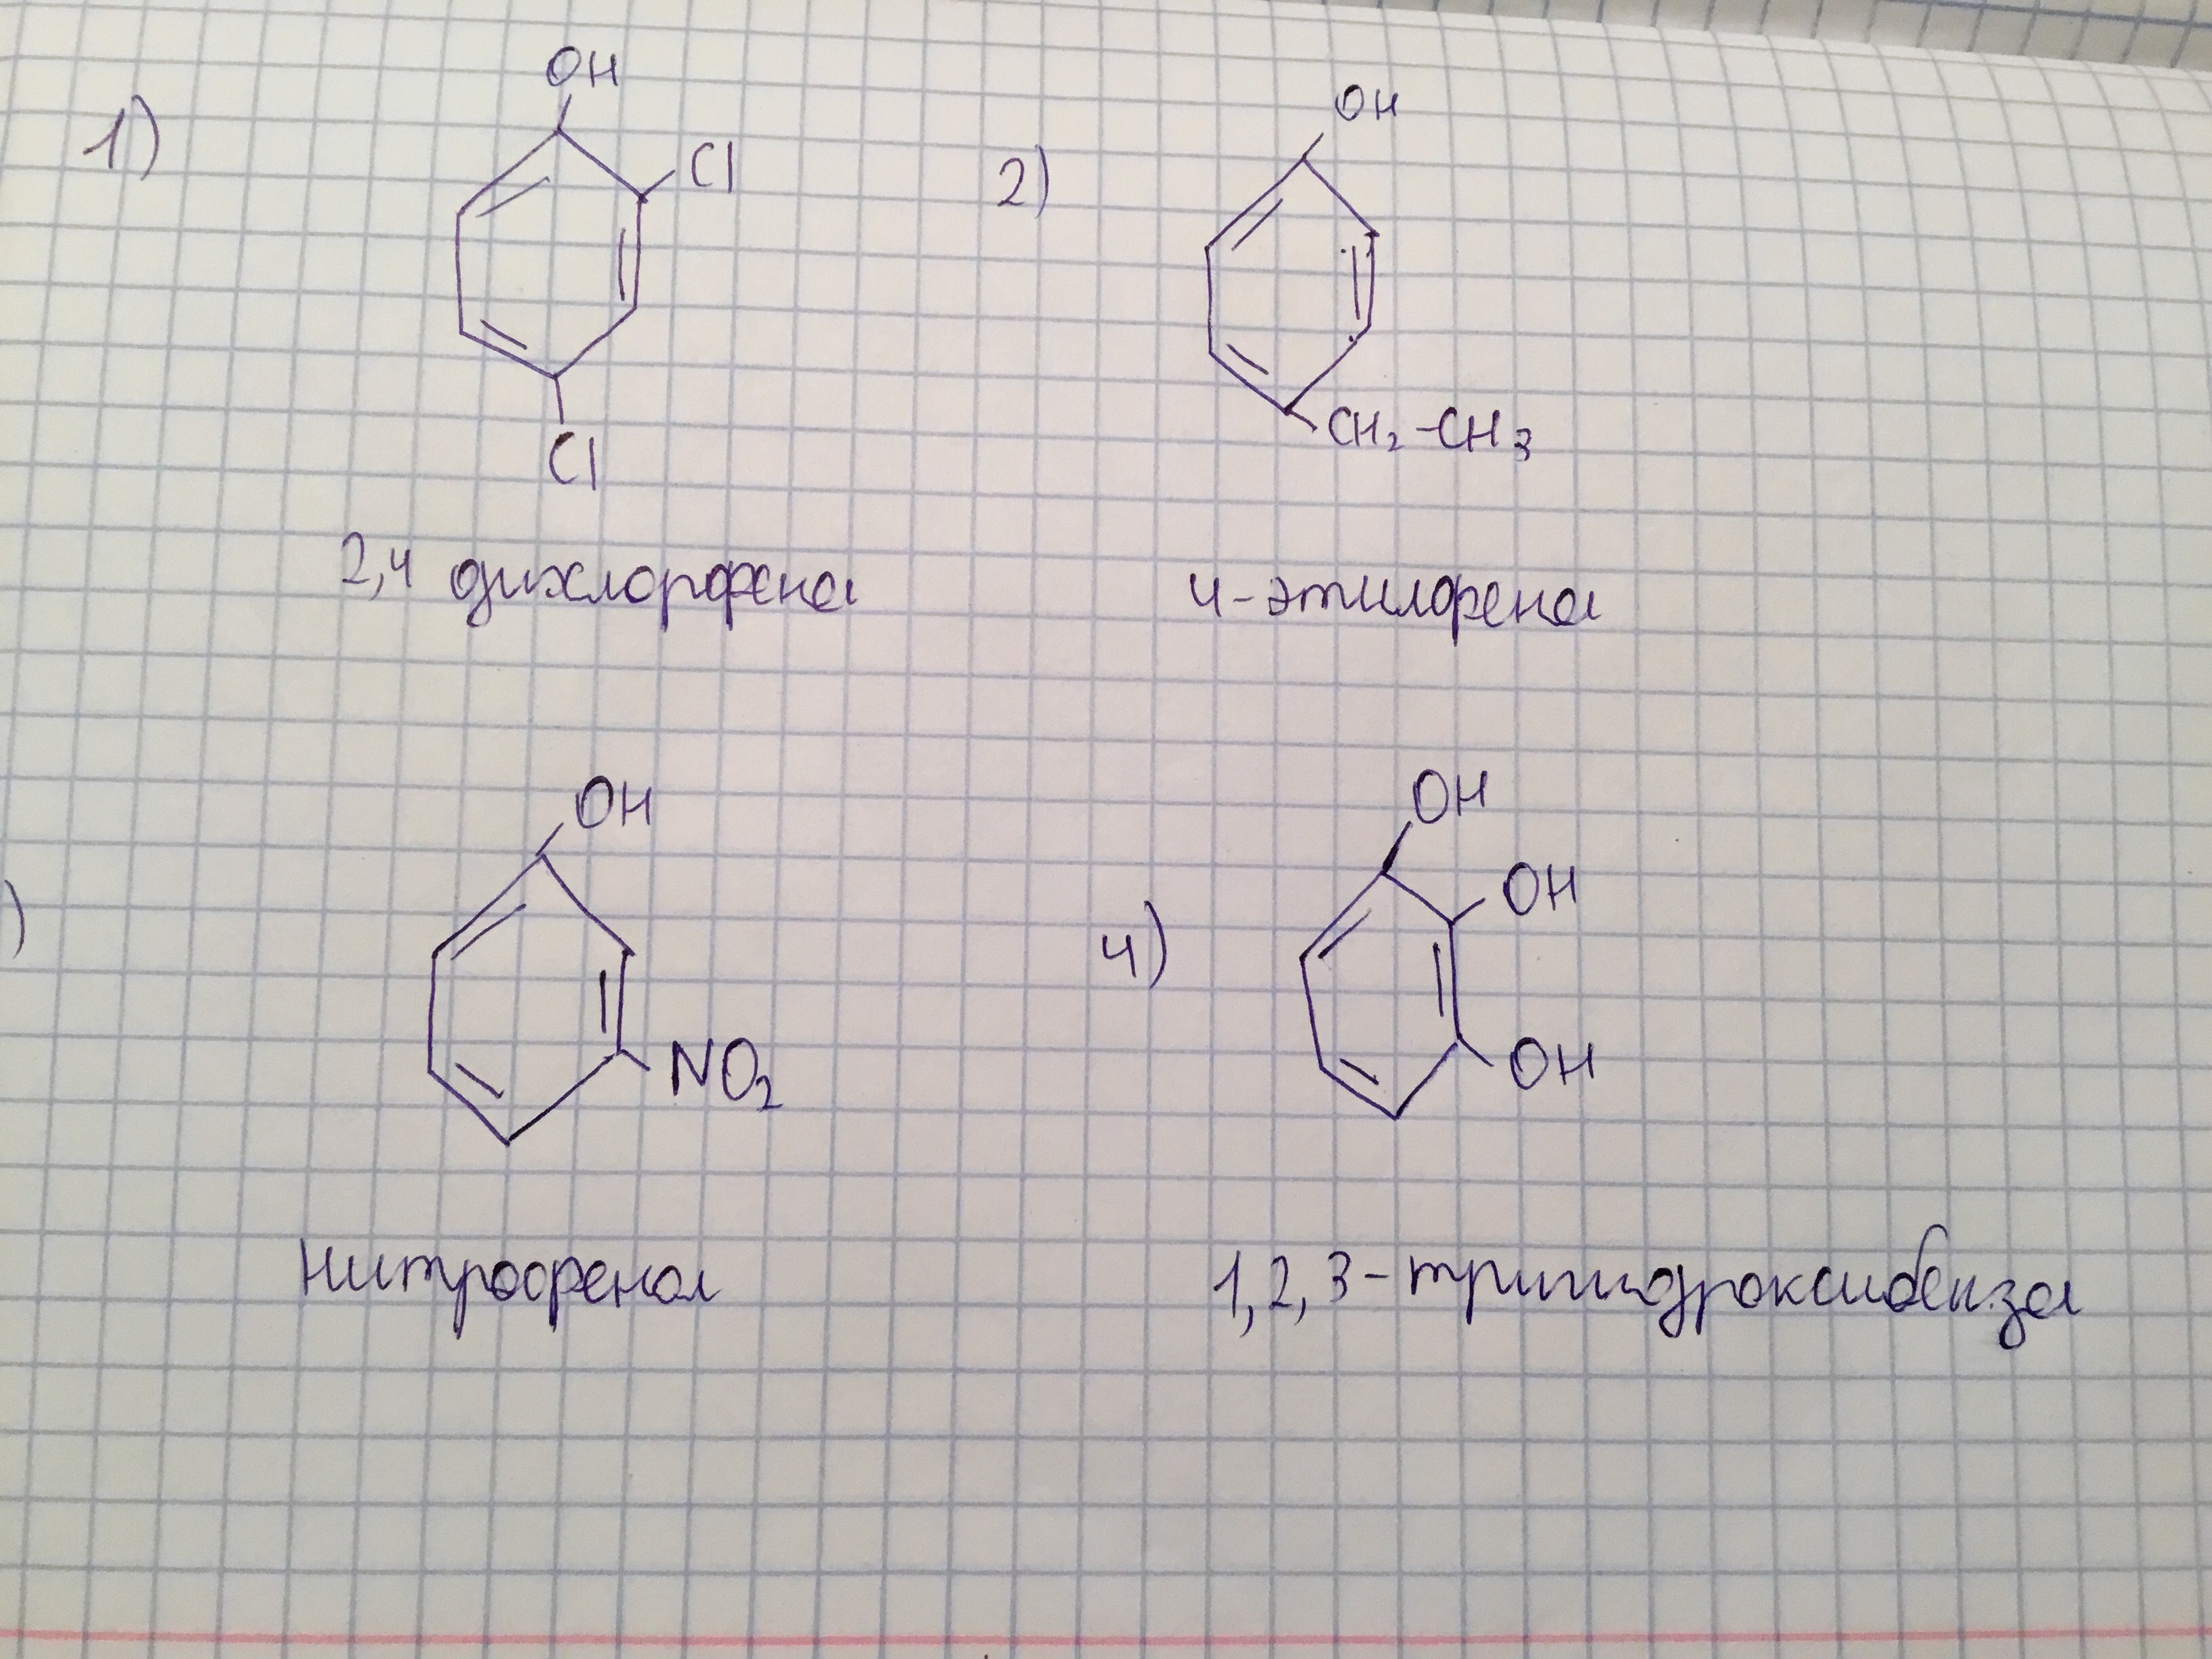 1)
OH
Cl
Cl
2,4 дихлорфенол
2)
OH
CH₂-CH₃
4-этилфенол
)
OH
NO₂
Нитрофенол
4)
OH
OH
OH
1,2,3-тригидроксибензол